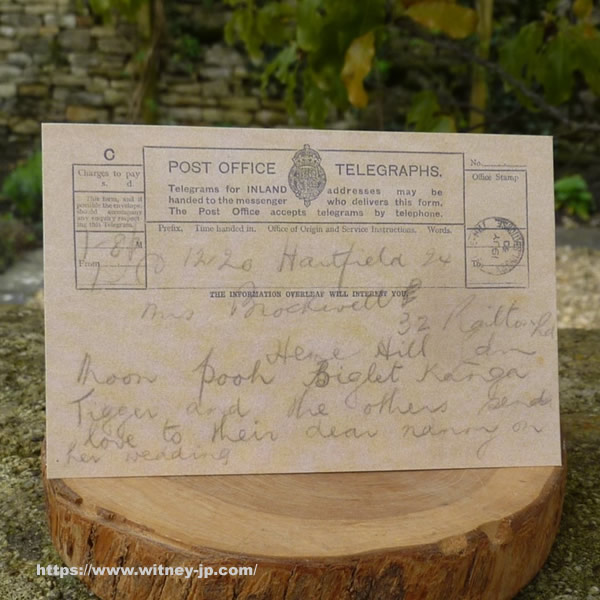 C
POST OFFICE TELEGRAPHS.
Charges to pay
s. d
This form, and if
possible the envelope,
should accompany
any enquiry respect-
ing this Telegram.
Telegrams for INLAND addresses may be
handed to the messenger who delivers this form.
The Post Office accepts telegrams by telephone.
No.
Office Stamp
Prefix. Time handed in. Office of Origin and Service Instructions. Words.
M
From
To
1220 Hartfield 24
THE INFORMATION OVERLEAF WILL INTEREST YOU
Mrs Brockwell
32 Railton Rd
Herne Hill Ldn
Moon Pooh Piglet Kanga
Tigger and the others send
love to their dear nanny on
her wedding
https://www.witney-jp.com/